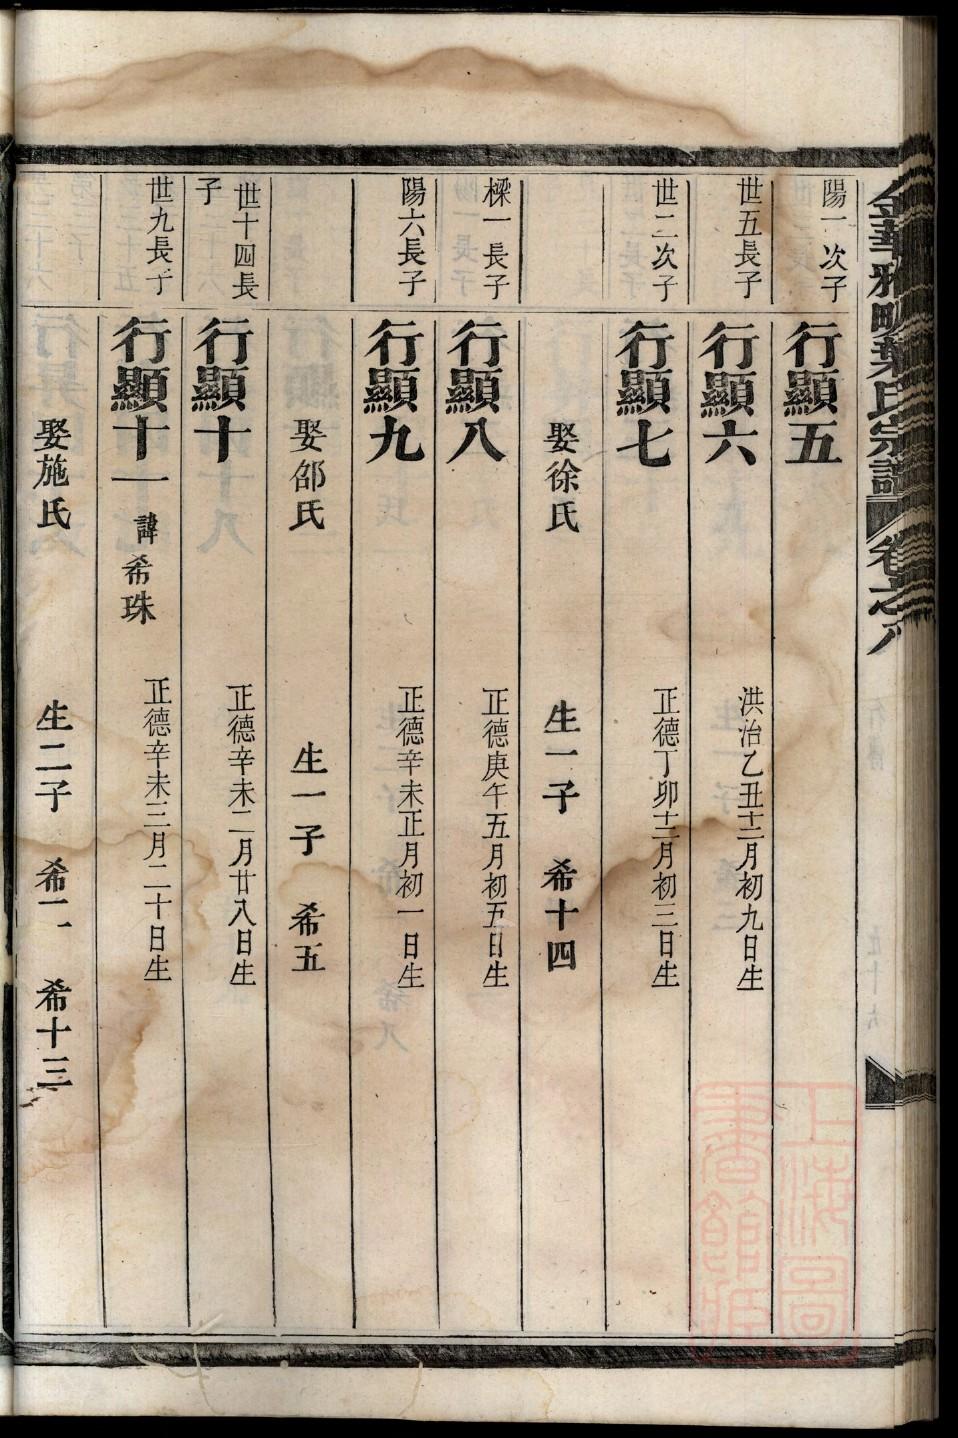 金華雅畈葉氏宗譜 卷之八
陽一次子 行顯五
世五長子 行顯六 洪治乙丑十二月初九日生
世二次子 行顯七 正德丁卯十二月初三日生
娶徐氏 生一子 希十四
樑一長子 行顯八 正德庚午五月初五日生
陽六長子 行顯九 正德辛未正月初一日生
娶邵氏 生一子 希五
世十四長子 行顯十 正德辛未二月廿八日生
世九長子 行顯十一 諱希珠 正德辛未三月二十日生
娶施氏 生二子 希二 希十三
上海圖書館藏